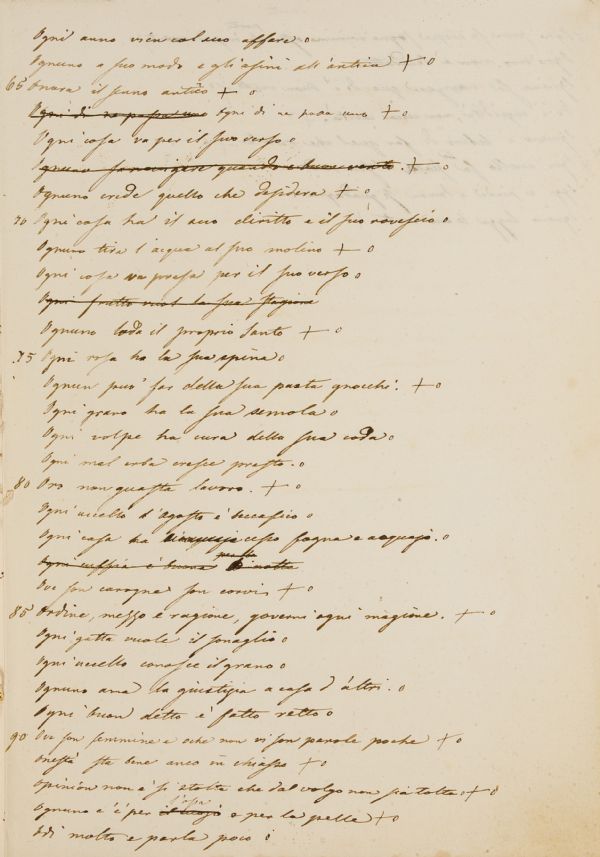 Ogni anno vien col suo affare o
Ognuno a suo modo e gli asini all'antica + o
65 Onora il senno antico + o
Ogni dì ne passa uno Ogni dì ne passa uno + o
Ogni cosa va per il suo verso o
Ognuno sa navigare quando è buon vento. + o
Ognuno crede quello che desidera + o
70 Ogni cosa ha il suo diritto e il suo rovescio o
Ognuno tira l'acqua al suo molino + o
Ogni cosa va presa per il suo verso o
Ogni frutto vuol la sua stagione
Ognuno loda il proprio santo + o
75 Ogni rosa ha la sua spina o
Ognun può far della sua pasta gnocchi. + o
Ogni grano ha la sua semola o
Ogni volpe ha cura della sua coda o
Ogni mal erba cresce presto. o
80 Oro non guasta lavoro. + o
Ogni uccello d'Agosto è beccafico o
Ogni casa ha cesso fogna e acquajo. o
Ogni cuffia è buona per la notte
Ove son carogne son corvi + o
85 Ordine, mezzo e ragione, governi ogni magione. + o
Ogni gatta vuole il sonaglio o
Ogni uccello conosce il grano o
Ognuno ama la giustizia a casa d'altri. o
Ogni buon detto è fatto retto o
90 Ove son femmine e oche non vi son parole poche + o
Onestà sta bene anco in chiasso + o
Opinion non è sì stolta che dal volgo non sia tolta. + o
Ognuno è è per l'ossa e per la pelle + o
Odi molto e parla poco o